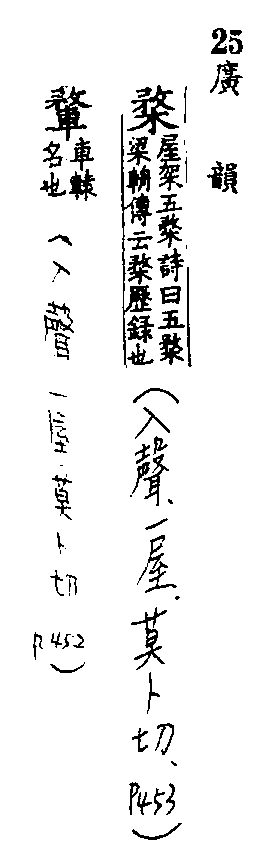 25 廣韻
楘 屋架五楘詩曰五楘
梁輈傳云楘歷録也
(入聲、一屋、莫卜切、P453)
車轅
名也
(入聲一屋.莫卜切 P452)